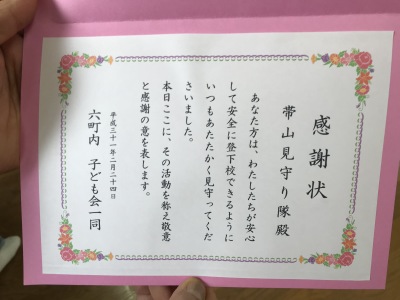 感謝状
帯山見守り隊殿
あなた方は、わたしたちが安心
して安全に登下校できるように
いつもあたたかく見守ってくだ
さいました。
本日ここに、その活動を称え敬意
と感謝の意を表します。
平成三十一年二月二十四日
六町内 子ども会一同